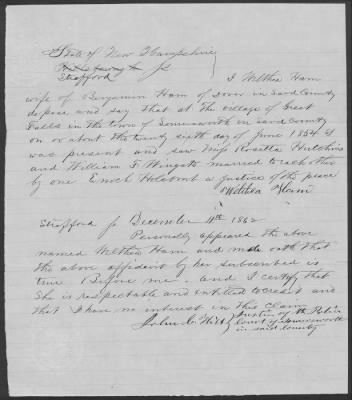 State of New Hampshire
Strafford ss
I Welthea Ham
wife of Benjamin Ham of Dover in said County
depose and say that at the village of Great
Falls in the town of Somersworth in said County
on or about the twenty sixth day of June 1854 I
was present and saw Miss Rosetta Hutchins
and William F Wingate married to each other
by one Enoch Holcomb a justice of the peace
Welthea Ham
Strafford ss December 11th 1862
Personally appeared the above
named Welthea Ham and made oath that
the above affidavit by her subscribed is
true Before me. and I certify that
She is respectable and entitled to credit and
that I have no interest in this Claim
John C. Hill Justice of the Police
Court of Somersworth
in said County